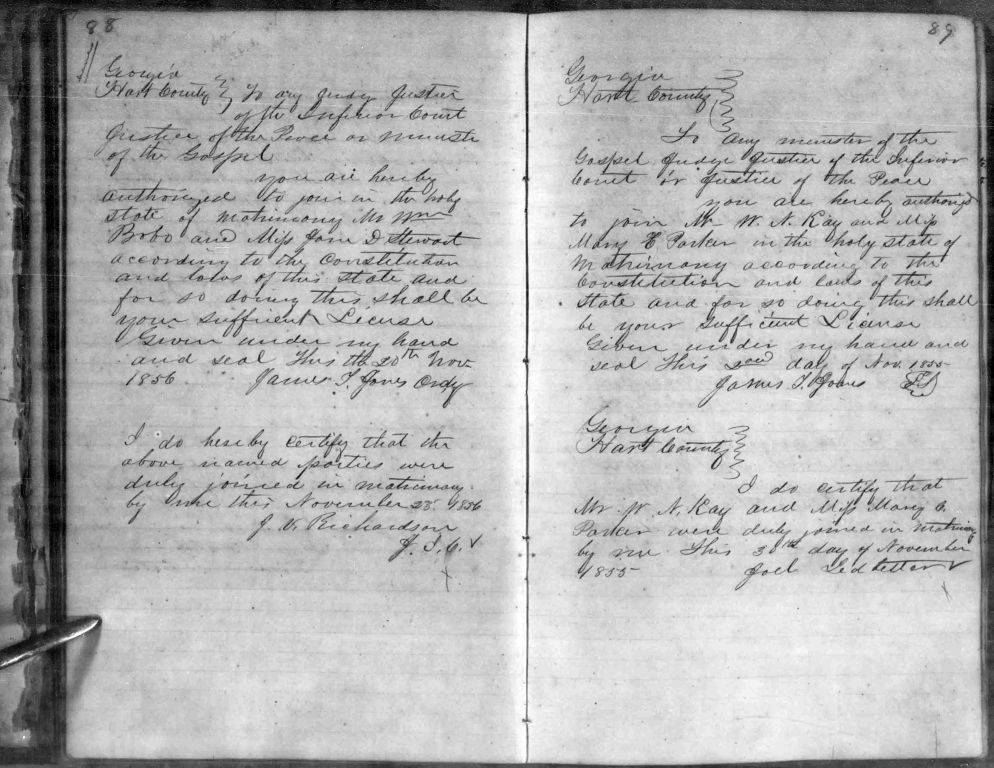 88
Georgia
Hart County } To any Judge Justice
of the Inferior Court
Justice of the Peace or minister
of the Gospel
you are hereby
authorized to join in the holy
state of matrimony Mr Wm
Bobo and Miss Jane D Stewart
according to the Constitution
and laws of this State and
for so doing this shall be
your sufficient License
Given under my hand
and seal This the 20th Nov
1856 James T. Jones Ordy
I do hereby certify that the
above named parties were
duly joined in matrimony
by me this November 23 1856
J. V. Richardson
J. I. C.
89
Georgia
Hart County }
To any minister of the
Gospel Judge Justice of the Inferior
Court or Justice of the Peace
you are hereby authorized
to join Mr W. N. Kay and Miss
Mary E Parker in the holy state of
Matrimony according to the
Constitution and laws of this
State and for so doing this shall
be your sufficient License
Given under my hand and
seal This 2nd day of Nov. 1855
James T. Jones
Georgia
Hart County }
I do certify that
Mr W. N. Kay and Miss Mary E.
Parker were duly joined in matrimony
by me. This day of November
1855 Joel Ledbetter